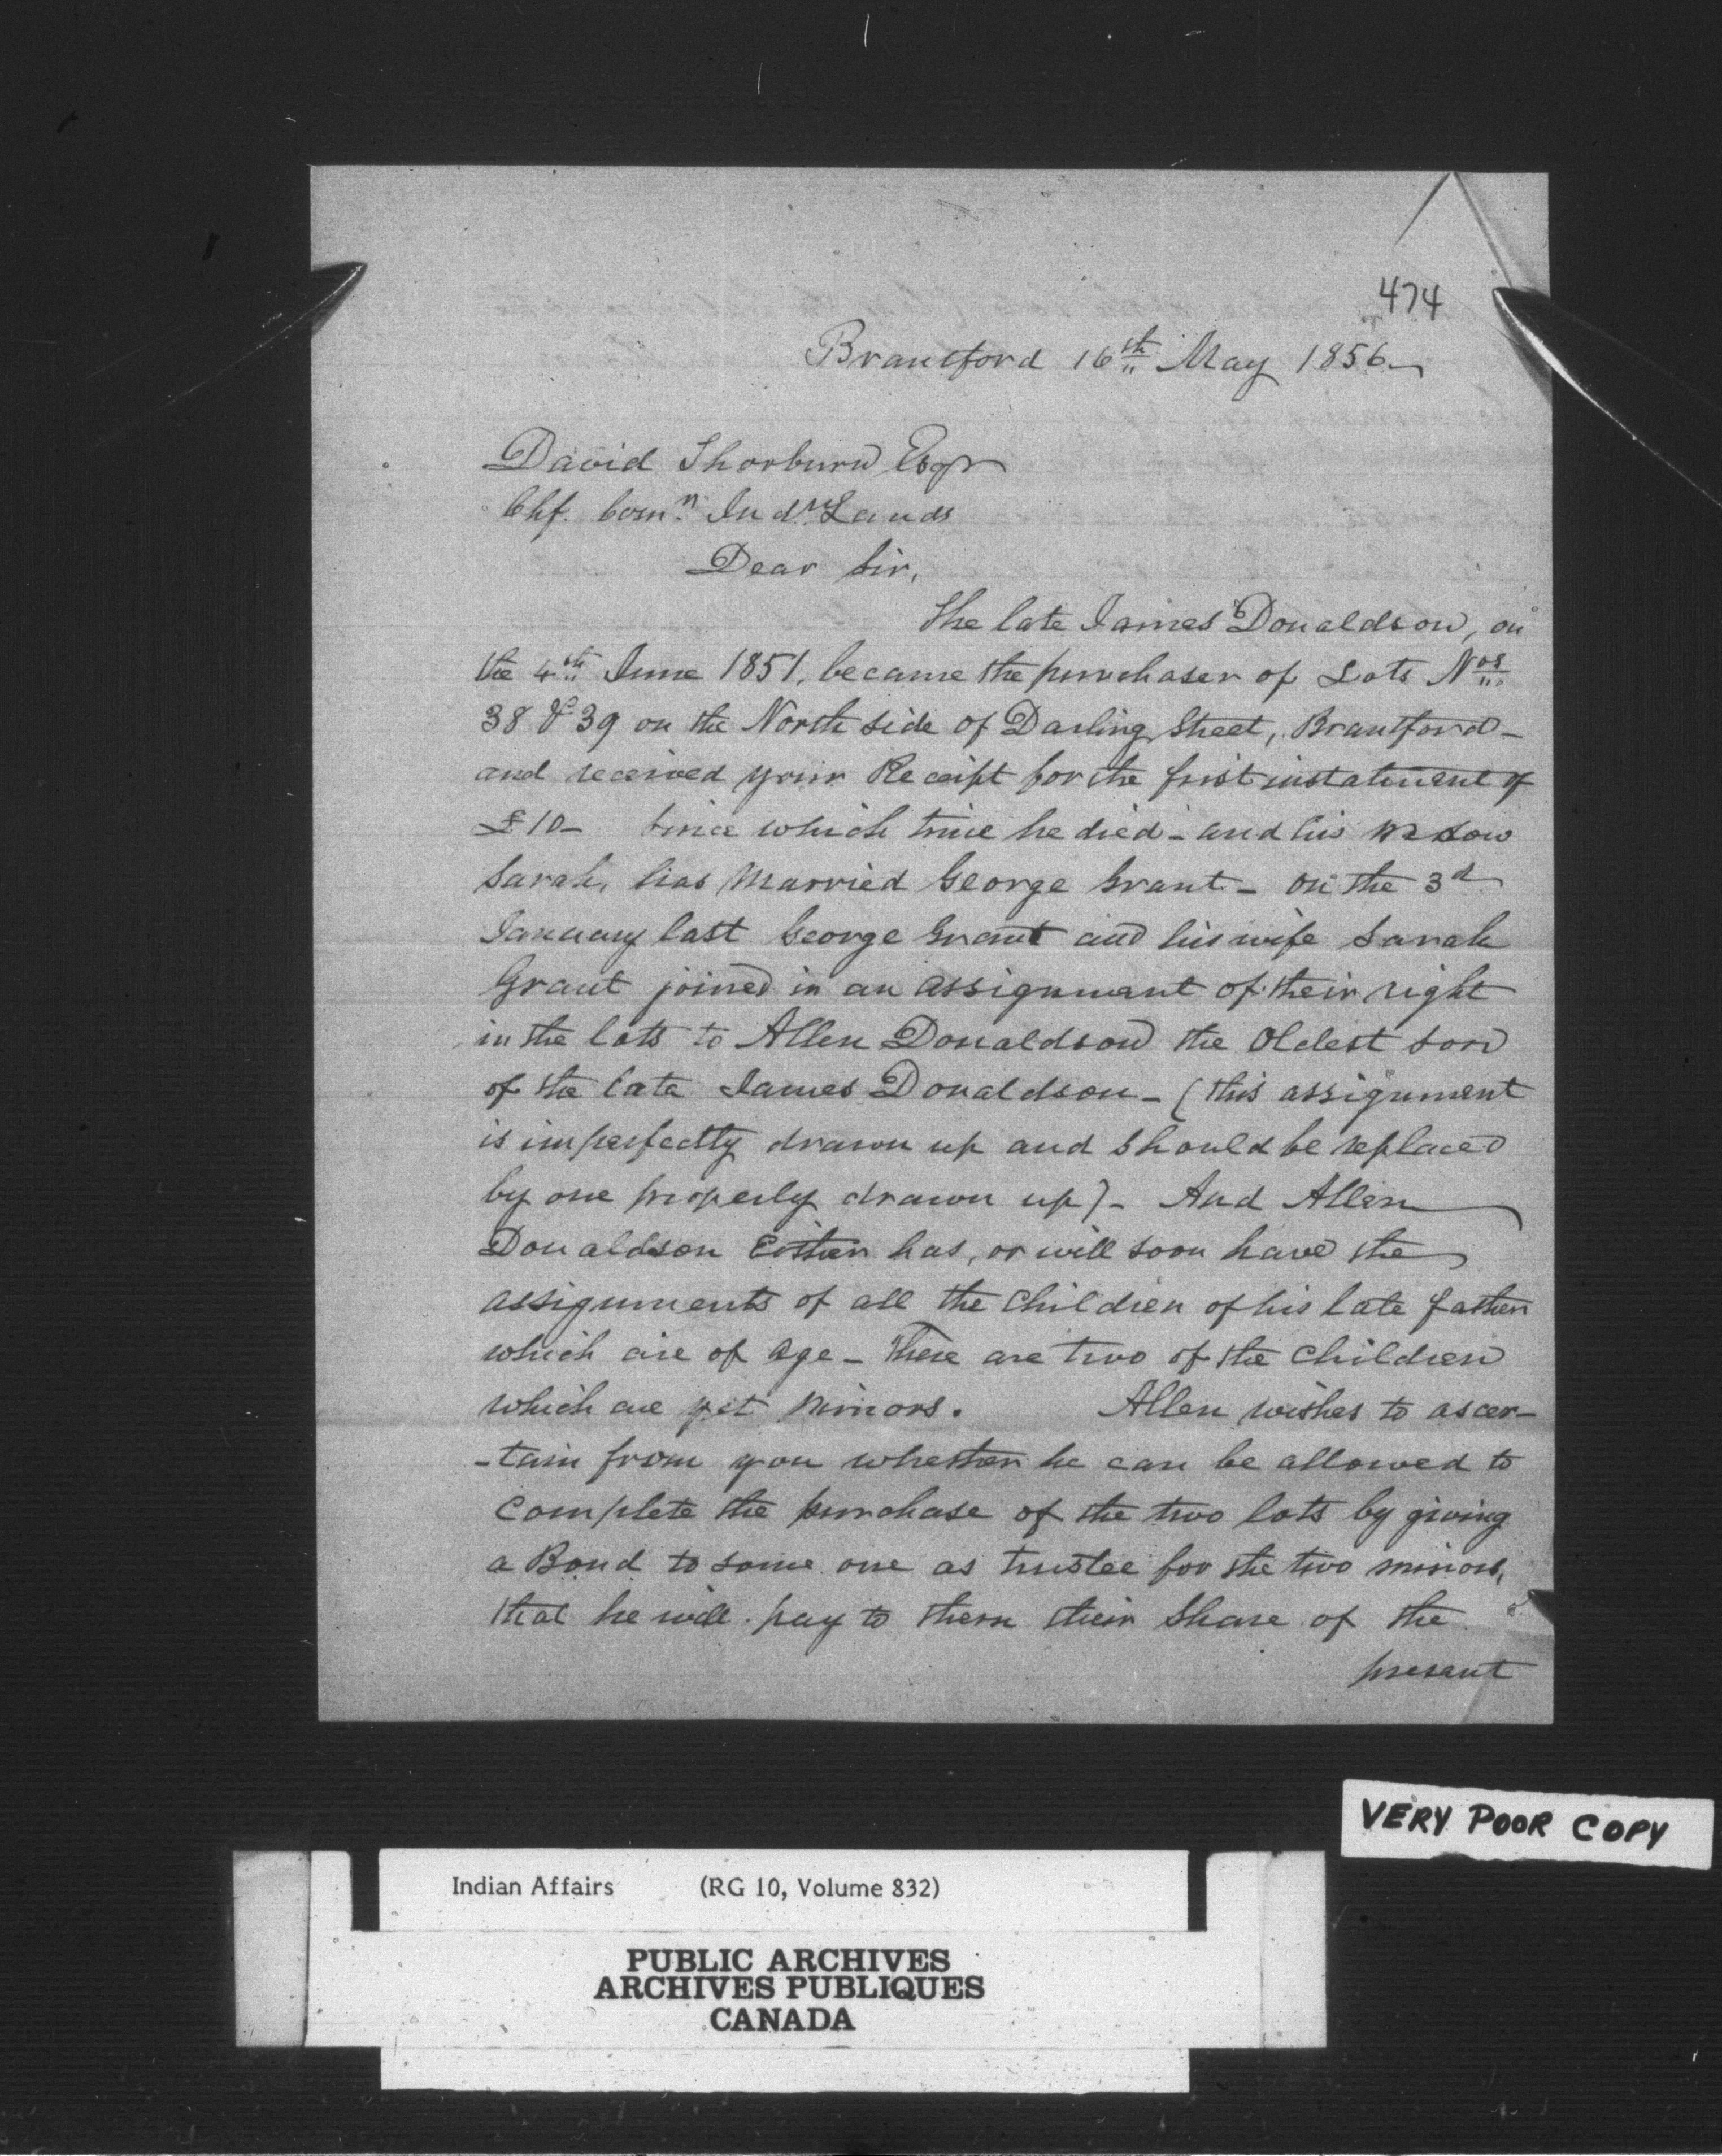 474
Brantford 16th May 1856
David Thorburn Esqr
Chf. Comn. Indn Lands
Dear Sir,
The late James Donaldson, on
the 4th June 1851, became the purchaser of Lots Nos
38 & 39 on the North side of Darling Street, Brantford -
and received your Receipt for the first instalment of
£10 - Since which time he died - and his widow
Sarah, has Married George Grant - on the 3d
January last George Grant and his wife Sarah
Grant joined in an assignment of their right
in the lots to Allen Donaldson the Oldest son
of the late James Donaldson - (this assignment
is imperfectly drawn up and should be replaced
by one properly drawn up) - And Allen
Donaldson Either has, or will soon have the
assignments of all the Children of his late father
which are of Age - There are two of the Children
which are yet Minors. Allen wishes to ascer-
-tain from you whether he can be allowed to
Complete the purchase of the two lots by giving
a Bond to some one as trustee for the two minors,
that he will pay to them their Share of the
present
VERY POOR COPY
Indian Affairs (RG 10, Volume 832)
PUBLIC ARCHIVES
ARCHIVES PUBLIQUES
CANADA